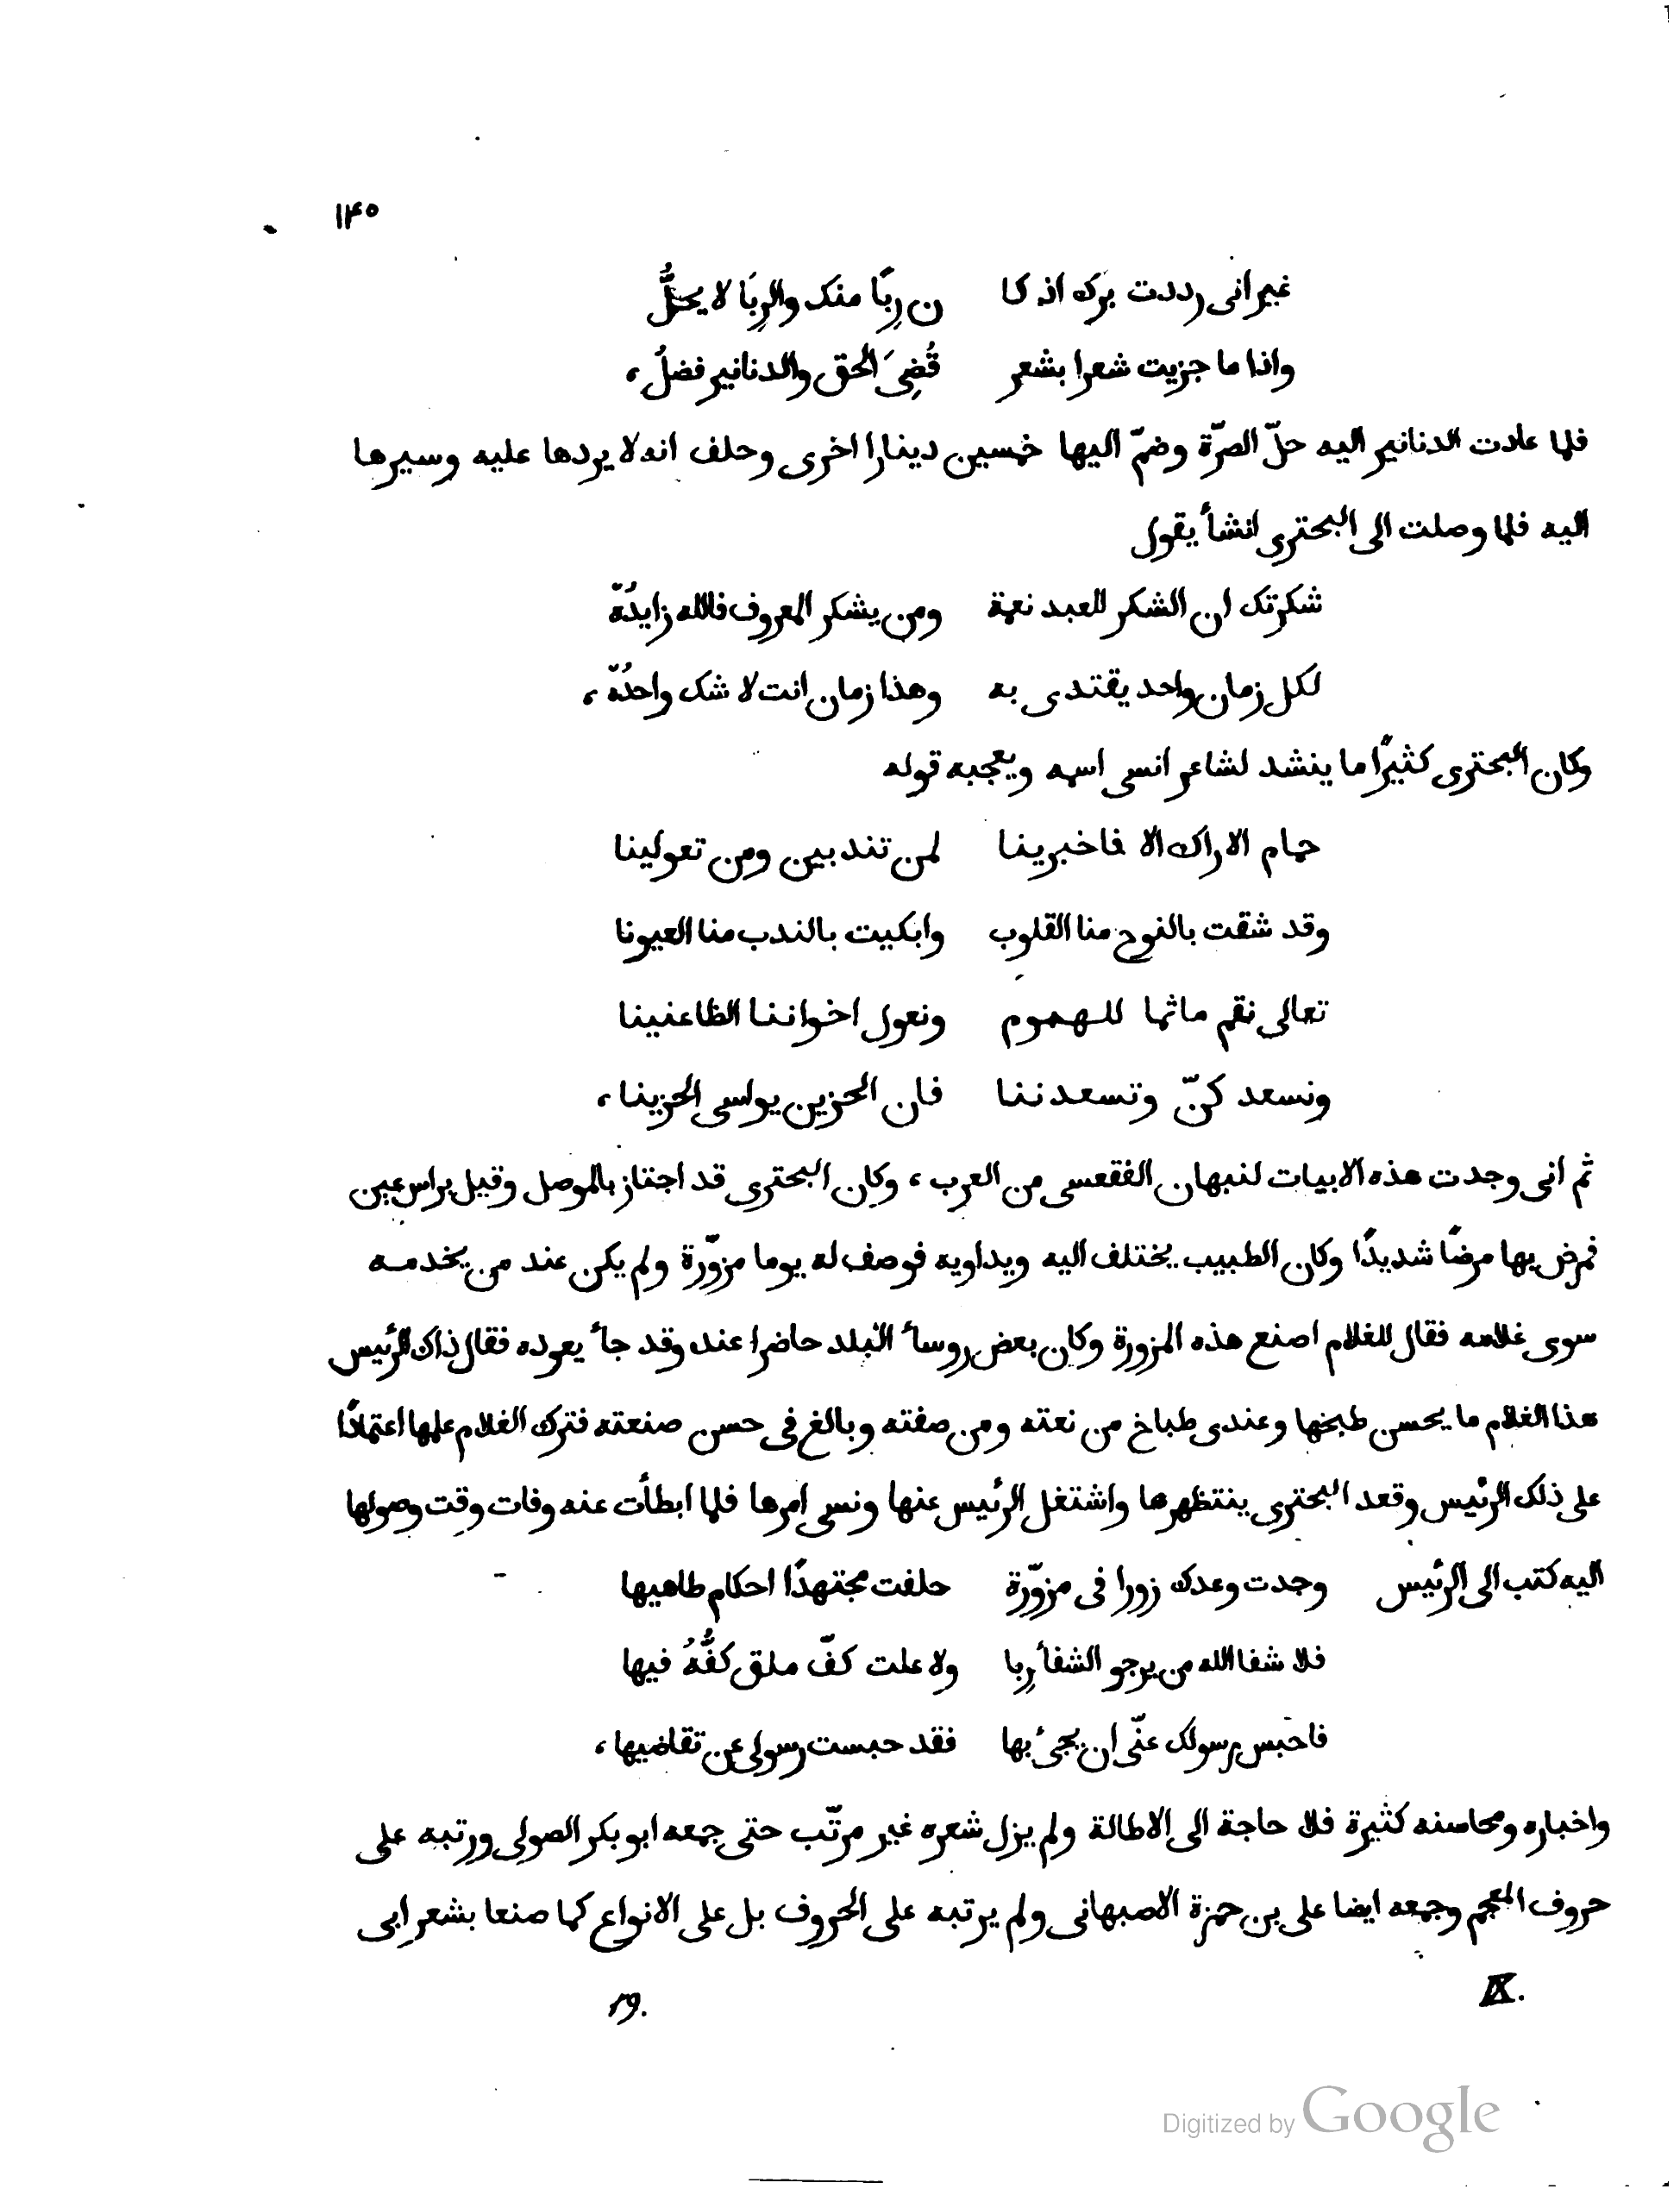 ١٤٥
غير انى رددت برك اذ كا ن رِبًا منك والرِبَا لا يحلُّ
واذا ما جزيت شعرا بشعر قُضِىَ الحق والدنانير فضلُ،
فلما عادت الدنانير اليه حلّ الصرّة وضمّ اليها خمسين دينارا اخرى وحلف انه لا يردها عليه وسيرها
اليه فلما وصلت الى البحترى انشأ يقول
شكرتك ان الشكر للعبد نعمة ومن يشكر المعروف فالله زايدُهّ
لكل زمان واحد يقتدى به وهذا زمان انت لا شك واحدُهّ،
وكان البحترى كثيرًا ما ينشد لشاعر انسى اسمه ويعجبه قوله
حمام الاراك الا فاخبرينا لمن تندبين ومن تعولينا
وقد شقت بالنوح منا القلوب وابكيت بالندب منا العيونا
تعالى نقم ماتما للهموم ونعول اخواننا الظاعنينا
ونسعد كنّ وتسعدننا فان الحزين يواسى الحزينا،
ثم انى وجدت هذه الابيات لنبهان الفقعسى من العرب، وكان البحترى قد اجتاز بالموصل وقيل براس عين
فمرض بها مرضًا شديدًا وكان الطبيب يختلف اليه ويداويه فوصف له يوما مزوّرة ولم يكن عند من يخدمه
سوى غلامه فقال للغلام اصنع هذه المزورة وكان بعض روسأ البلد حاضرا عنده وقد جأ يعوده فقال ذاك الرئيس
هذا الغلام ما يحسن طبخها وعندى طباخ من نعته ومن صفته وبالغ فى حسن صنعته فترك الغلام عملها اعتمادًا
على ذلك الرئيس وقعد البحترى ينتظرها واشتغل الرئيس عنها ونسى امرها فلما ابطأت عنه وفات وقت وصولها
اليه كتب الى الرئيس وجدت وعدك زورا فى مزوّرة حلفت مجتهدًا احكام طاهيها
فلا شفا الله من يرجو الشفأ رِبا ولا علت كفّ ملق كفُّهُ فيها
فاحبس رسولك عنّى ان يجئ بها فقد حبست رسولى عن تقاضيها،
واخباره ومحاسنه كثيرة فلا حاجة الى الاطالة ولم يزل شعره غير مرتّب حتى جمعه ابو بكر الصولى ورتبه على
حروف المعجم وجمعه ايضا على بن حمزة الاصبهانى ولم يرتبه على الحروف بل على الانواع كما صنعا بشعر ابى
IX. 19.
Digitized by Google